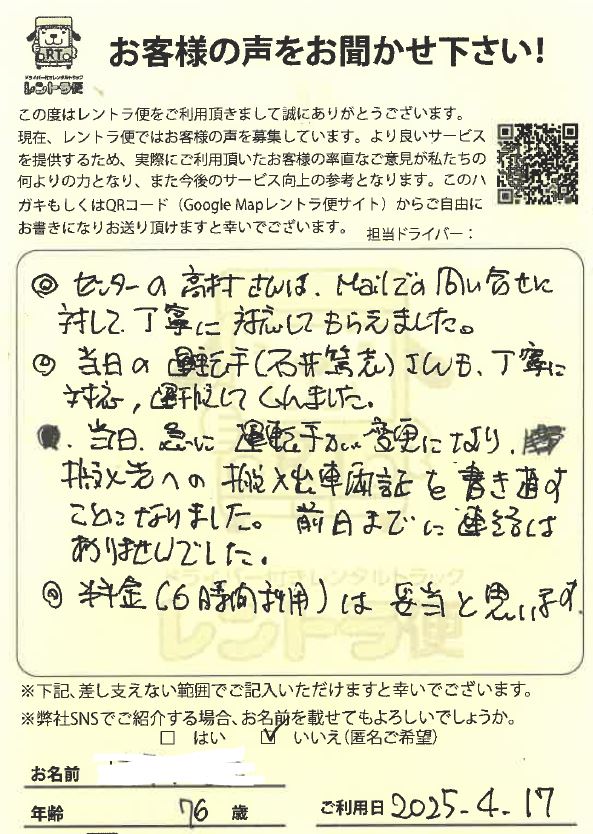 RTO
ドライバー付きレンタルトラック
レントラ便
お客様の声をお聞かせ下さい!
この度はレントラ便をご利用頂きまして誠にありがとうございます。
現在、レントラ便ではお客様の声を募集しています。より良いサービス
を提供するため、実際にご利用頂いたお客様の率直なご意見が私たちの
何よりの力となり、また今後のサービス向上の参考となります。このハ
ガキもしくはQRコード（Google Mapレントラ便サイト）からご自由に
お書きになりお送り頂けますと幸いでございます。 担当ドライバー：
◎ センターの高村さんは、Mailでの問い合せに
対して丁寧に対応してもらえました。
◎ 当日の運転手(石井篤志)さんも、丁寧に
対応,運転してくれました。
当日、急に運転手がい変更になり、
搬入先への搬入出車両証を書き直す
ことになりました。前日までに連絡は
ありませんでした。
◎ 料金(6時間利用)は妥当と思います。
ドライバー付きレンタルトラック
レントラ便
※下記、差し支えない範囲でご記入いただけますと幸いでございます。
※弊社SNSでご紹介する場合、お名前を載せてもよろしいでしょうか。
□ はい ☑ いいえ(匿名ご希望)
お名前
年齢 76 歳 ご利用日 2025-4.17